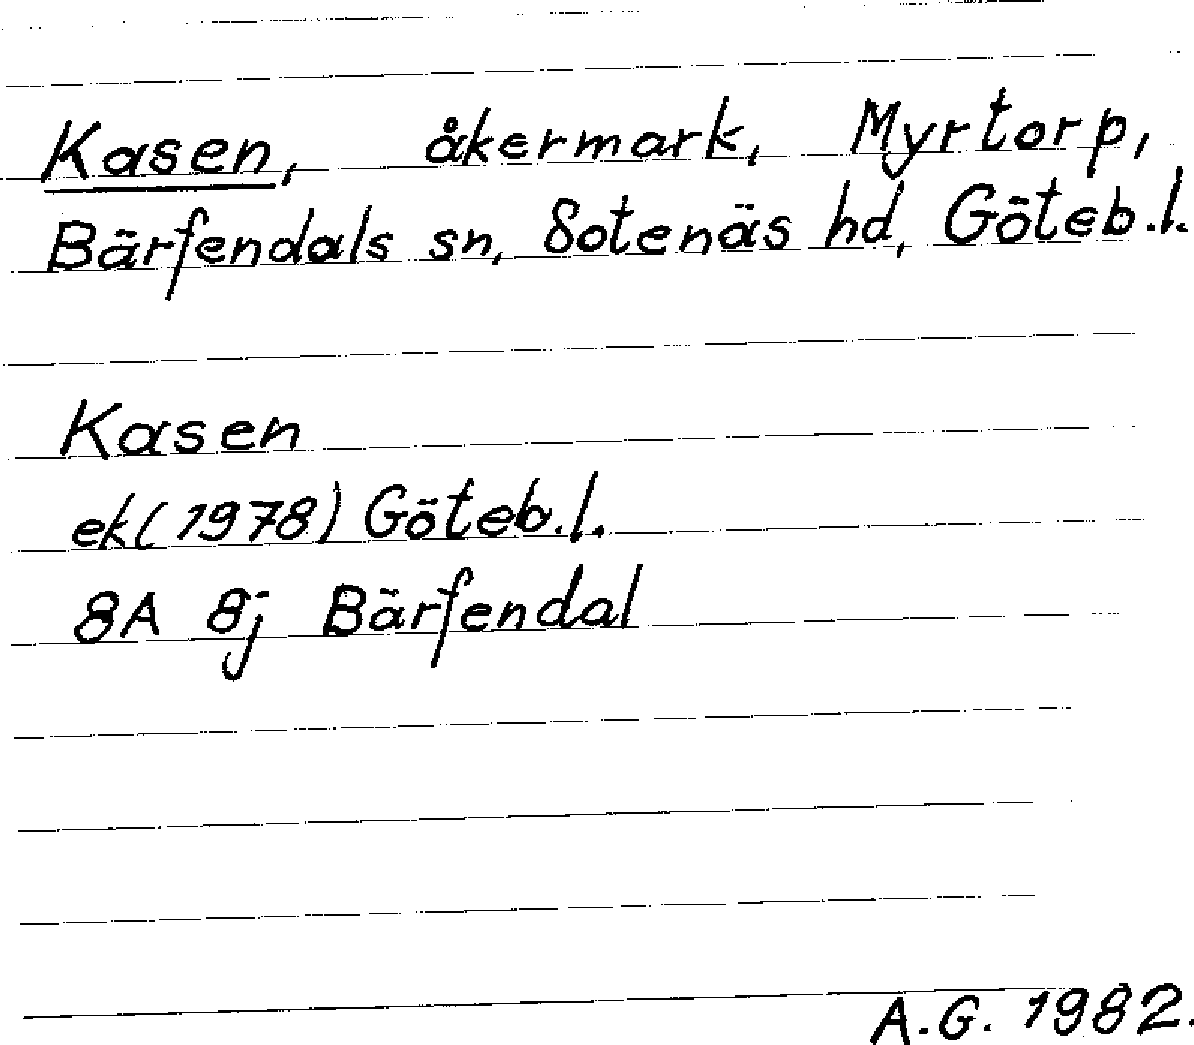 Kasen, åkermark, Myrtorp,
Bärfendals sn, Sotenäs hd, Göteb.l.
Kasen
ek(1978) Göteb.l.
8A 8j Bärfendal
A.G. 1982.